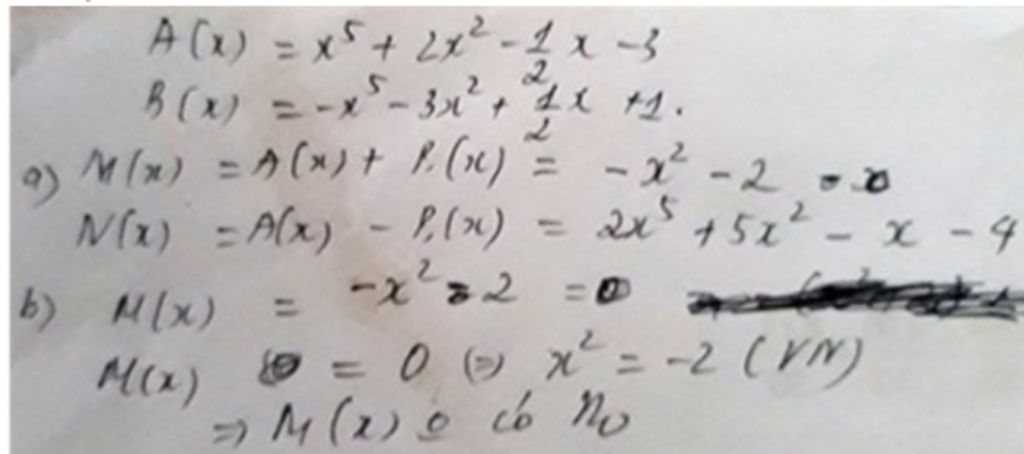 A(x) = x⁵ + 2x² - 1/2 x - 3
B(x) = -x⁵ - 3x² + 1/2 x + 1.
a) M(x) = A(x) + B(x) = -x² - 2
N(x) = A(x) - B(x) = 2x⁵ + 5x² - x - 4
b) M(x) = -x² - 2 = 0
M(x) = 0 (=) x² = -2 (VN)
=> M(x) có n₀